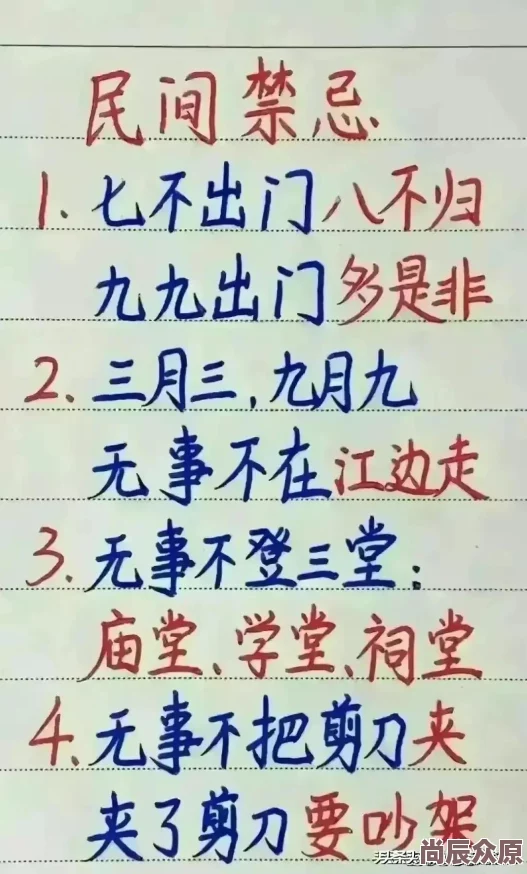 民间禁忌
1. 七不出门八不归
九九出门多是非
2. 三月三,九月九
无事不在江边走
3. 无事不登三堂:
庙堂、学堂、祠堂
4. 无事不把剪刀夹
夹了剪刀要吵架
尚辰众原